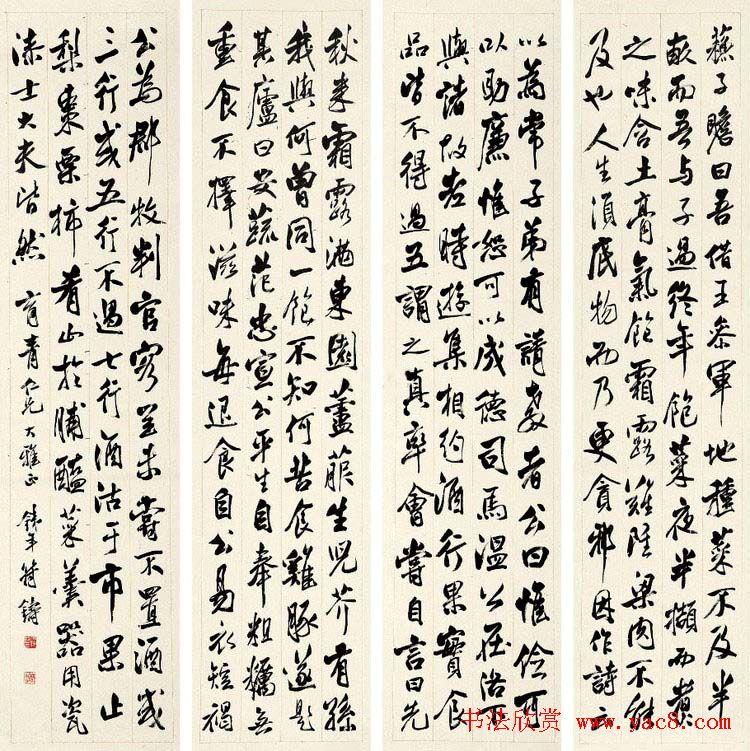 蘇子瞻曰吾借王參軍地種菜不及半
畝而吾与子過終年飽菜夜半擷而煮
之味含土膏氣飽霜露雖粱肉不能
及也人生須底物而乃更貪邪因作詩云
以為常子弟有請教者公曰惟儉可
以助廉惟恕可以成德司馬溫公在洛下
與諸故老時遊集相約酒行果實食
品皆不得過五謂之真率會嘗自言曰先
秋來霜露滿東園蘆菔生兒芥有孫
我與何曾同一飽不知何苦食雞豚遂題
其廬曰安蔬范忠宣公平生自奉粗糲無
重食不擇滋味每退食自公易衣短褐
公為郡牧判官客至未嘗不置酒或
三行或五行不過七行酒沽于市果止
梨棗栗柿肴止於脯醢菜羹器用瓷
漆士大夫皆然 育青仁兄大雅正 鐵年符鑄
书法欣赏
www.yac8.com